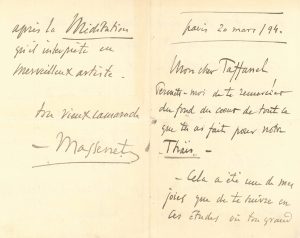 Paris 20 mars/94.
Mon cher Taffanel
Permets-moi de te remercier
du fond du cœur de tout ce
que tu as fait pour notre
Thaïs. —
— Cela a été une de mes
joies que de te suivre en
ces études où ton grand
après la Méditation
qu'il interprète en
merveilleux artiste.
ton vieux camarade
— Massenet